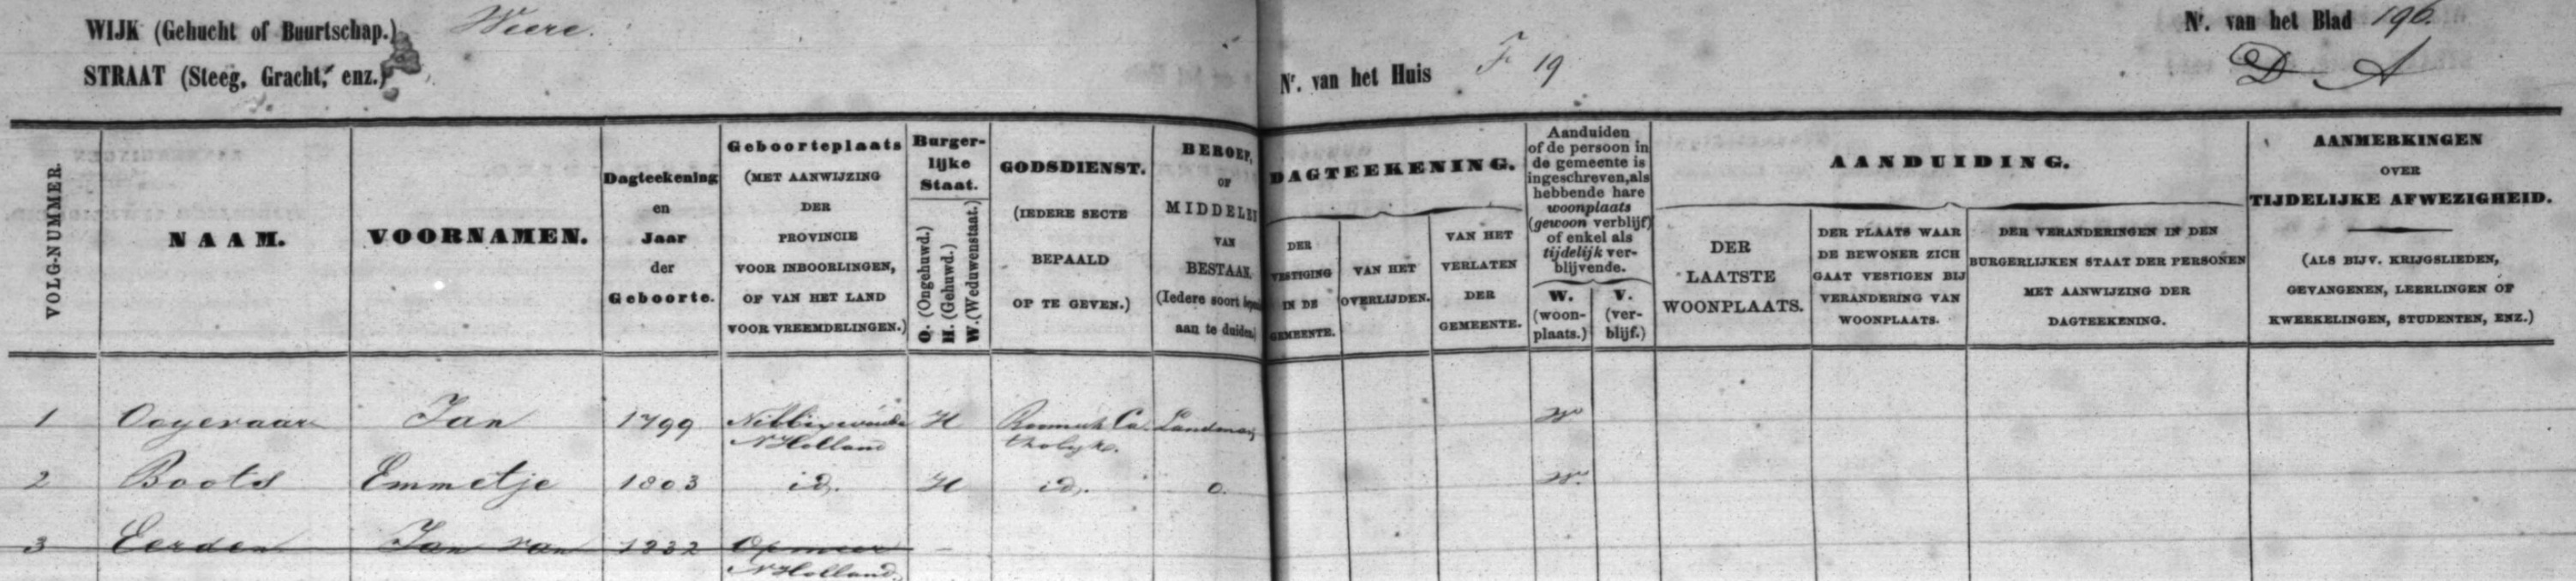 WIJK (Gehucht of Buurtschap.) Weere.
STRAAT (Steeg, Gracht, enz.)
Nr. van het Huis F 19
Nr. van het Blad 196.
D A
VOLG-NUMMER
NAAM.
VOORNAMEN.
Dagteekening
en
Jaar
der
Geboorte.
Geboorteplaats
(MET AANWIJZING
DER
PROVINCIE
VOOR INBOORLINGEN,
OF VAN HET LAND
VOOR VREEMDELINGEN.)
Burger-
lijke
Staat.
O. (Ongehuwd.)
H. (Gehuwd.)
W. (Weduwenstaat.)
GODSDIENST.
(IEDERE SECTE
BEPAALD
OP TE GEVEN.)
BEROEP,
OF
MIDDELEN
VAN
BESTAAN.
(Iedere soort
aan te duiden)
DAGTEEKENING.
DER
VESTIGING
IN DE
GEMEENTE.
VAN HET
OVERLIJDEN.
VAN HET
VERLATEN
DER
GEMEENTE.
Aanduiden
of de persoon in
de gemeente is
ingeschreven, als
hebbende hare
woonplaats
(gewoon verblijf)
of enkel als
tijdelijk ver-
blijvende.
W.
(woon-
plaats.)
V.
(ver-
blijf.)
AANDUIDING.
DER
LAATSTE
WOONPLAATS.
DER PLAATS WAAR
DE BEWONER ZICH
GAAT VESTIGEN BIJ
VERANDERING VAN
WOONPLAATS.
DER VERANDERINGEN IN DEN
BURGERLIJKEN STAAT DER PERSONEN
MET AANWIJZING DER
DAGTEEKENING.
AANMERKINGEN
OVER
TIJDELIJKE AFWEZIGHEID.
(ALS BIJV. KRIJGSLIEDEN,
GEVANGENEN, LEERLINGEN OF
KWEEKELINGEN, STUDENTEN, ENZ.)
1 Ooyevaar Jan 1799 Nibbixwoude H Roomsch Ca. Landman W
N Holland tholyke.
2 Boots Emmetje 1803 id. H id. o. W.
3 Eerden Jan van 1832 Opmeer
N Holland.